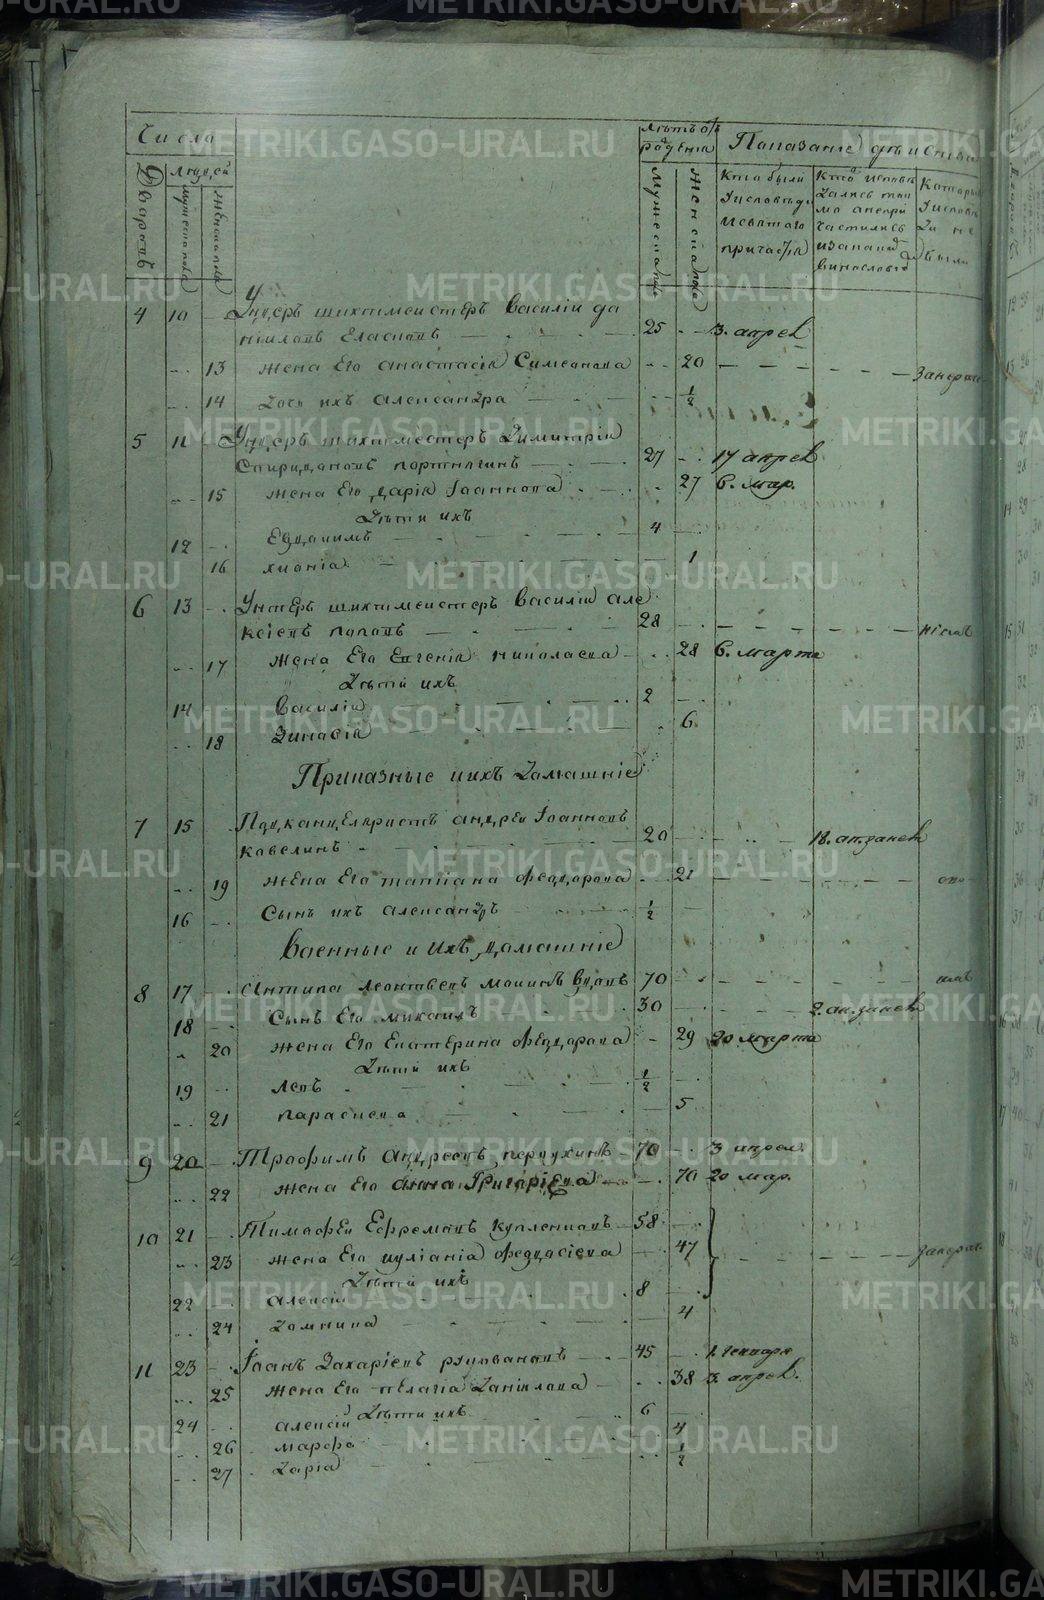 Числа
Лѣтъ от рожденія
Показаніе дѣйства
Дворовъ
Людей
Мужеска пола
Женска пола
Кто были
у исповѣди
и святаго
причастія
Кто исповѣ
дались
частились
винословію
у исповѣ
ди не
были
4 10 Унтеръ шихтмейстеръ Василій Да
ниловъ 25 3. апрел
13 Жена его Анастасія Симеонова 20
14 Дочь ихъ Александра 1/2
5 11 Унтеръ шихтмейстеръ Димитрій
Спиридоновъ Портнягинъ 27 17 апрел
15 Жена его Дарія Іоаннова 27 6. мар.
Дѣти ихъ
12 Евдокимъ 4
16 Хіонія 1
6 13 Унтеръ шихтмейстеръ Василій Але
ксіевъ Поповъ 28
17 Жена его Евгенія Николаева 28 6. марта
Дѣти ихъ
14 Василій 2
18 Зинасія 6
Приказные и ихъ домашніе
7 15 Подканцеляристъ Андрей Іоанновъ
Кавелинъ 20 18. ап.
19 Жена его Татіана Феодорова 21
16 Сынъ ихъ Александръ 1/2
Военные и ихъ домашніе
8 17 Антипа Леонтьевъ вдовъ 70
18 Сынъ его Михаилъ 30 2. ап.
20 Жена его Екатерина Феодорова 29 20 марта
Дѣти ихъ
19 Левъ 1/2
21 Параскева 5
9 20 Трофимъ Андреевъ 70 3 апрел.
22 Жена его Анна Григоріева 70 20 мар.
10 21 Тимофей Ефремовъ 58
23 Жена его Иуліанія Феодосіева 47
Дѣти ихъ
22 Алексій 8
24 Домника 4
11 23 Іоанъ Захаріевъ 45
25 Жена его Пелагія Даніилова 38 3. апрел.
Дѣти ихъ
24 Алексій 6
26 Марфа 4
27 Дарія 1/2
METRIKI.GASO-URAL.RU